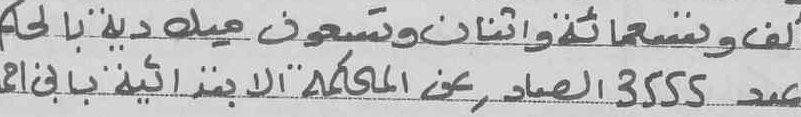 ألف وتسعمائة واثنان وتسعون ميلادية بالحكم
عدد 3555 الصادر عن المحكمة الابتدائية بابن احمد